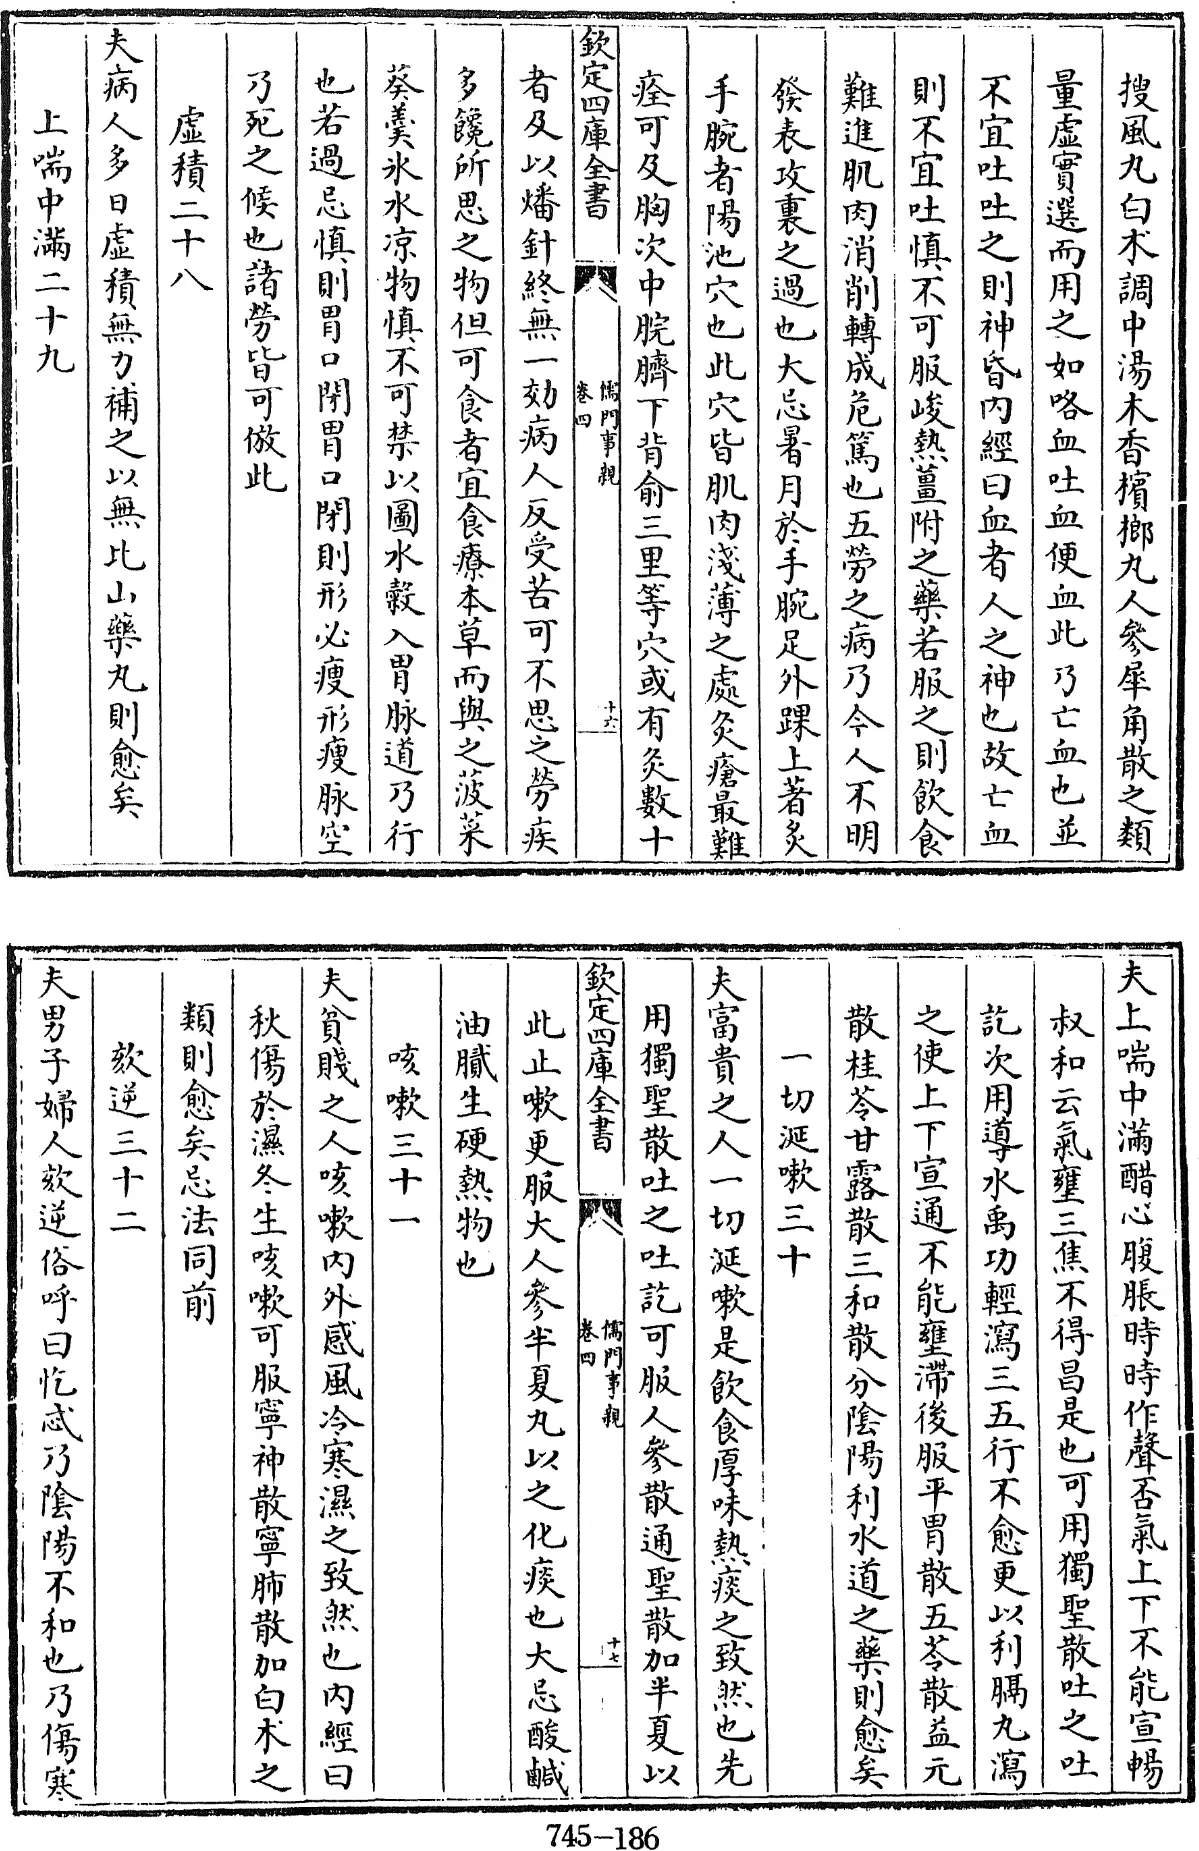 搜風丸白朮調中湯木香檳榔丸人參犀角散之類
量虛實選而用之如咯血吐血便血此乃亡血也並
不宜吐吐之則神昏内經曰血者人之神也故亡血
則不宜吐慎不可服峻熱薑附之藥若服之則飲食
難進肌肉消削轉成危篤也五勞之病乃今人不明
發表攻裏之過也大忌暑月於手腕足外踝上著炙
手腕者陽池穴也此穴皆肌肉淺薄之處灸瘡最難
痊可及胸次中脘臍下背俞三里等穴或有灸數十
欽定四庫全書
儒門事親
卷四
十六
者及以燔針終無一効病人反受苦可不思之勞疾
多饞所思之物但可食者宜食療本草而與之菠菜
葵羹氷水凉物慎不可禁以圖水穀入胃脉道乃行
也若過忌慎則胃口閉胃口閉則形必瘦形瘦脉空
乃死之候也諸勞皆可倣此
虛積二十八
夫病人多日虛積無力補之以無比山藥丸則愈矣
上喘中滿二十九
夫上喘中滿醋心腹脹時時作聲否氣上下不能宣暢
叔和云氣壅三焦不得昌是也可用獨聖散吐之吐
訖次用導水禹功輕瀉三五行不愈更以利膈丸瀉
之使上下宣通不能壅滯後服平胃散五苓散益元
散桂苓甘露散三和散分陰陽利水道之藥則愈矣
一切涎嗽三十
夫富貴之人一切涎嗽是飲食厚味熱痰之致然也先
用獨聖散吐之吐訖可服人參散通聖散加半夏以
欽定四庫全書
儒門事親
卷四
十七
此止嗽更服大人參半夏丸以之化痰也大忌酸鹹
油膩生硬熱物也
咳嗽三十一
夫貧賤之人咳嗽内外感風冷寒濕之致然也内經曰
秋傷於濕冬生咳嗽可服寧神散寧肺散加白朮之
類則愈矣忌法同前
欬逆三十二
夫男子婦人欬逆俗呼曰忔忒乃陰陽不和也乃傷寒
745-186